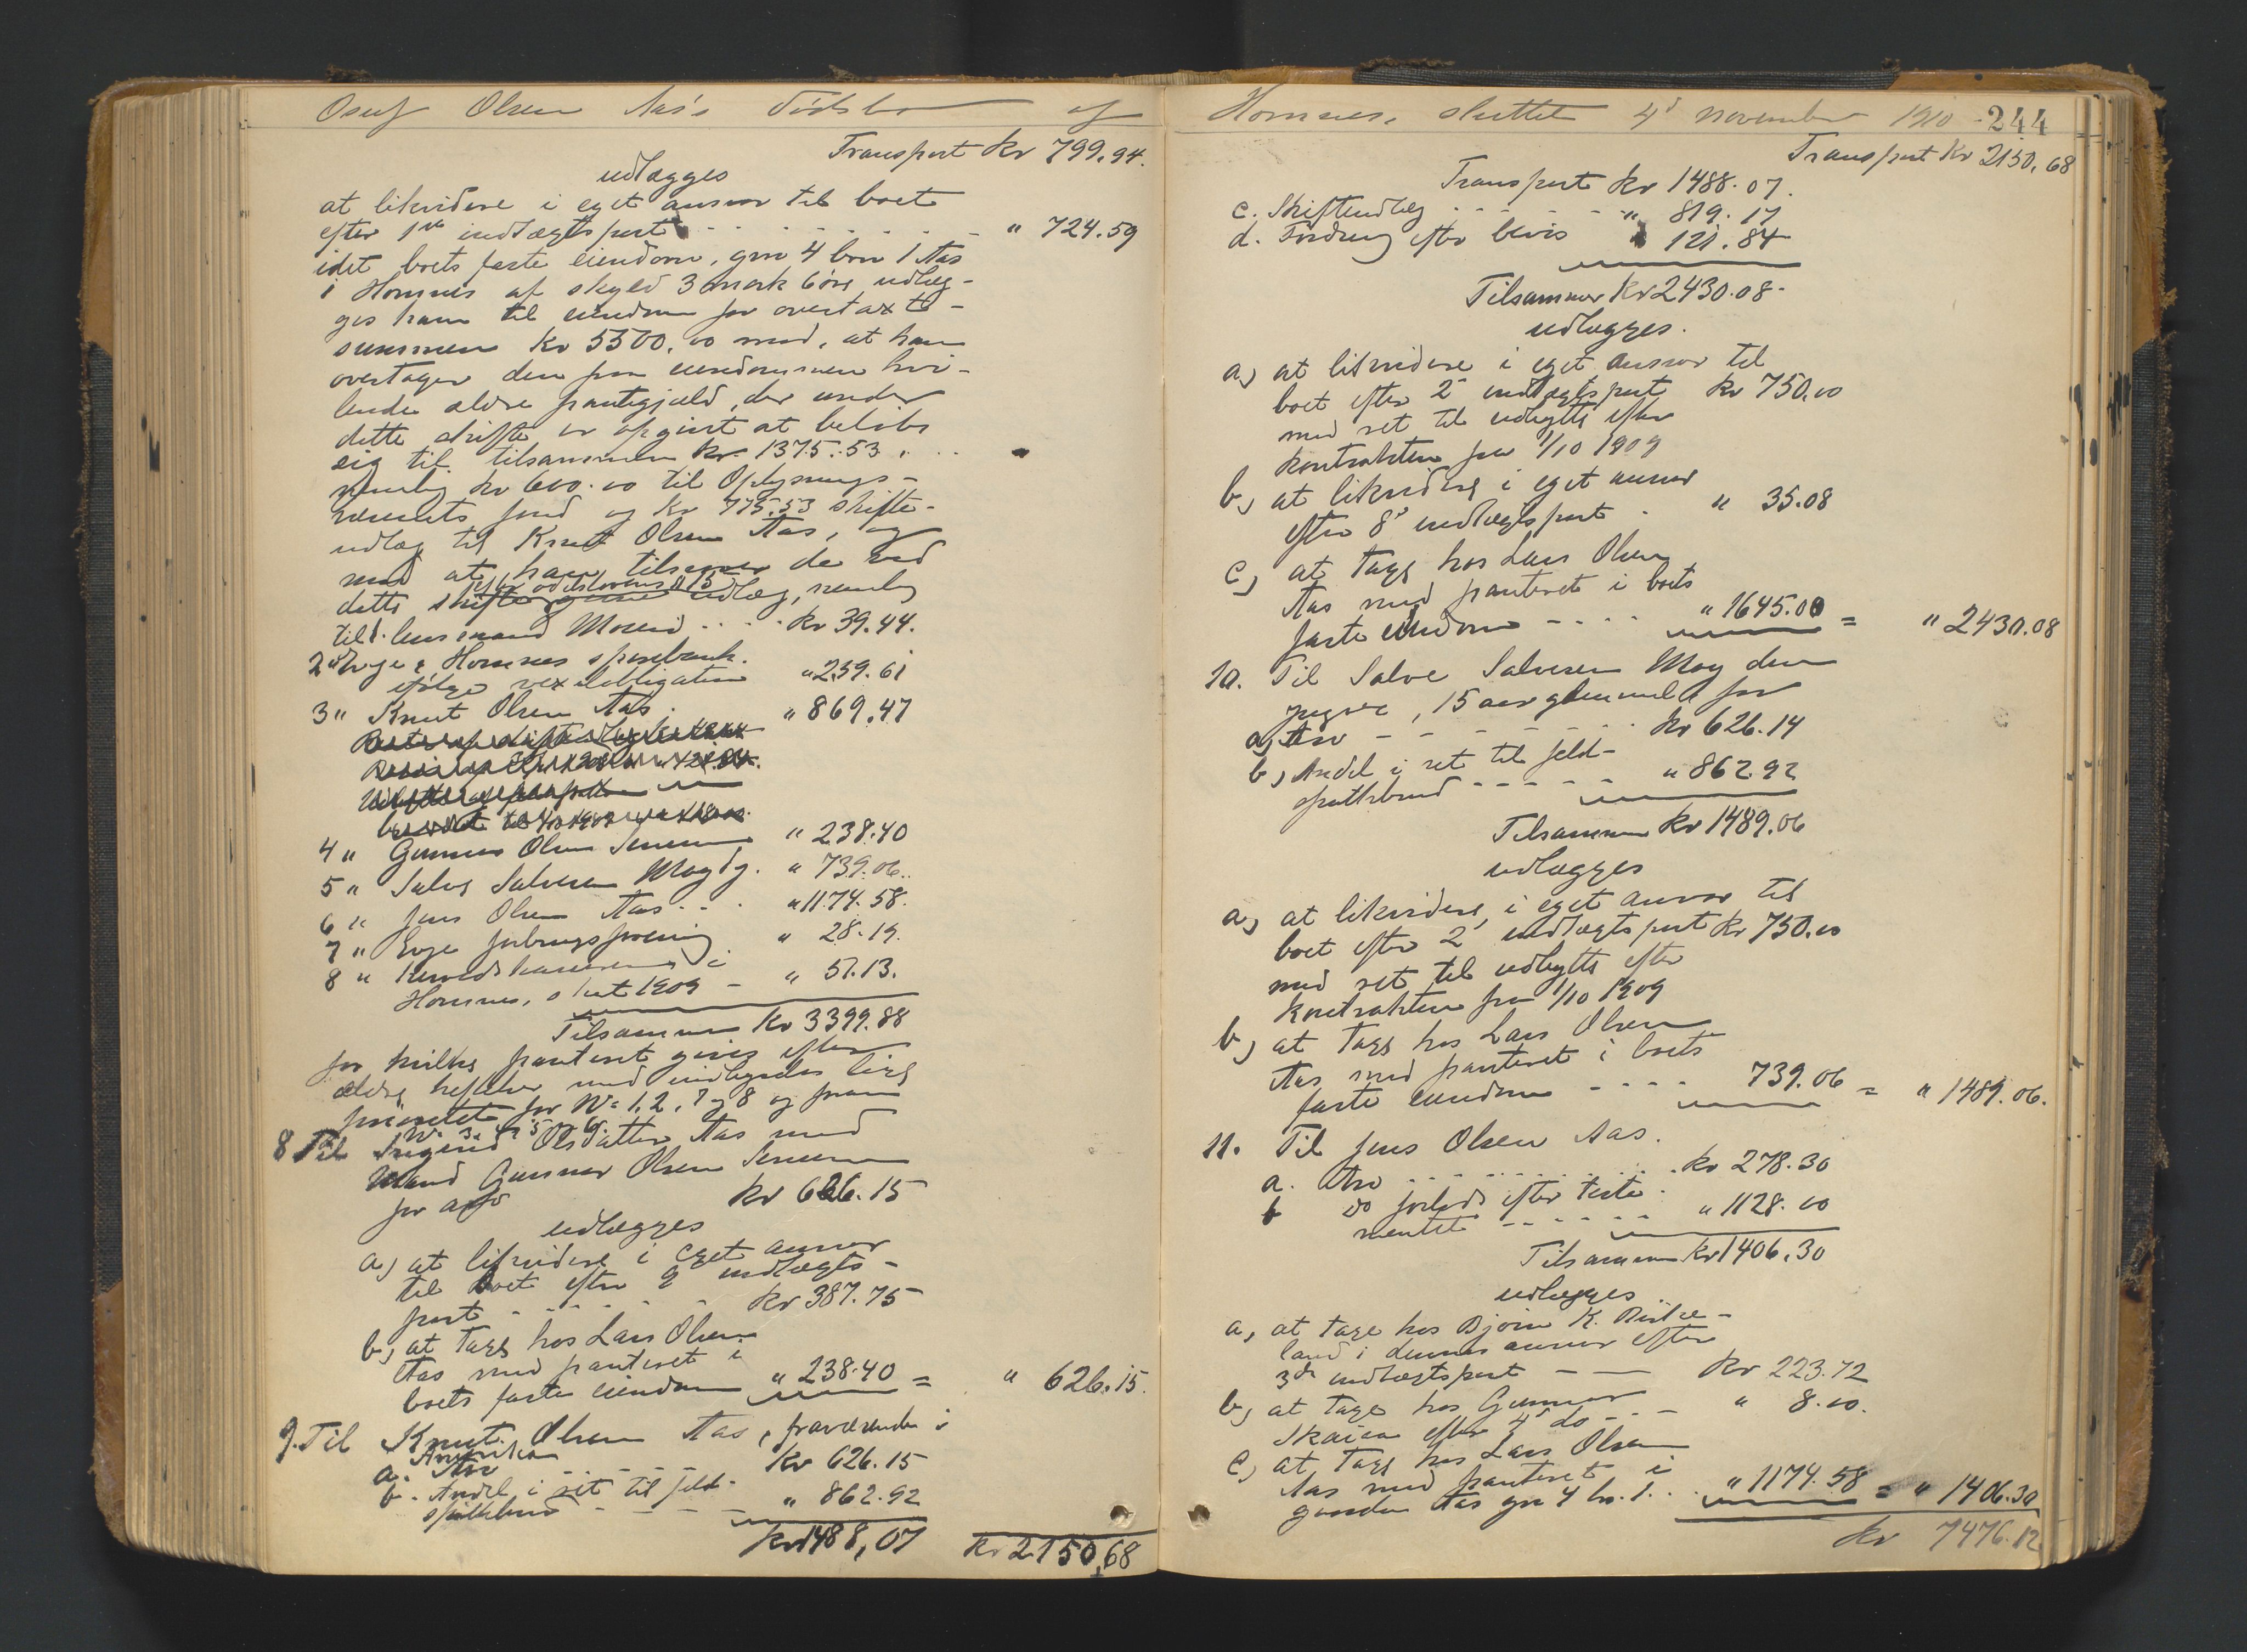 Osuf Olsen Aas's dødsbo af
Transport kr 799.94.
udlægges
at likvidere i eget ansvar til boet
efter 1ste indtægtspost - - - - - " 724.59
idet boets faste eiendom, gno 4 bno 1 Aas
i Hornnes af skyld 3 mark 6 øre udlæg-
ges ham til eiendom for overtaxt-
summen kr 5500.00 mod, at han
overtager den paa eiendommen hvi-
lende ældre pantegjæld, der under
dette skifte er opgivet at beløbe
sig til tilsammen kr. 1375.53,
nemlig kr 600.00 til Oplysnings-
væsenets fond og kr 775.53 skifte-
udlæg til Knut Olsen Aas, og
mod at han tilsvarer de ved
efter odelslovens § 15
dette skifte givne udlæg, nemlig
til 1. lensmand Moseid - - - kr 39.44.
2 " Evje & Hornnes sparebank
ifølge vexelobligation " 239.61
3 " Knut Olsen Aas. " 869.47
4 " Gunnar Olsen " 238.40
5 " Salve Salvesen Moy dy. " 739.06.
6 " Jens Olsen Aas - - " 1174.58.
7 " Evje forbrugsforening " 28.19.
8 " Herredskassereren i
Hornnes, skat 1909 - " 51.13.
Tilsammen kr 3399.88
for hvilke panteret gives efter
ældre heftelser med indbyrdes lige
prioritet for No 1, 2, 7 og 8 og foran
No 3, 4, 5 og 6.
8 Til Olsdatter Aas med
mand Gunnar Olsen
for arv kr 626.15
udlægges
a) at likvidere i eget ansvar
til boet efter 9 indtægts-
post - - - - - kr 387.75
b) at tage hos Lars Olsen
Aas med panteret i
boets faste eiendom " 238.40 = " 626.15.
9. Til Knut Olsen Aas, fraværende i
Amerika
a. Arv - - - - - kr 626.15
b. Andel i ret til feld-
spatbrud - - - " 862.92
kr 1488,07 kr 2150,68
Hornnes, sluttet 4de november 1910 - 244
Transport kr 2150,68
Transport kr 1488.07.
c. Skifteudlæg - - - - " 819.17
d. Fordring efter bevis " 121.84
Tilsammen kr 2430.08.
udlægges.
a) at likvidere i eget ansvar til
boet efter 2den indtægtspost kr 750,00
med ret til udbytte efter
kontrakten fra 1/10 1909
b) at likvidere i eget ansvar
efter 8de indtægtspost - " 35.08
c) at tage hos Lars Olsen
Aas med panteret i boets
faste eiendom - - - - " 1645.00 = " 2430.08
10. Til Salve Salvesen Moy den
yngre, 15 aar gammel for
a) Arv - - - - - - kr 626.14
b) Andel i ret til feld-
spatbrud - - - - " 862.92
Tilsammen kr 1489.06
udlægges
a) at likvidere i eget ansvar til
boet efter 2den indtægtspost kr 750.00
med ret til udbytte efter
kontrakten fra 1/10 1909
b) at tage hos Lars Olsen
Aas med panteret i boets
faste eiendom - - - - 739.06 = " 1489.06.
11. Til Jens Olsen Aas.
a. Arv - - - - - - - kr 278.30
b do forlods efter testa-
mentet - - - - - - " 1128.00
Tilsammen kr 1406.30
udlægges
a, at tage hos Bjørn K.
land i dennes ansvar efter
3die indtægtspost - - kr 223.72
b) at tage hos Gunnar
Skaiaa efter 4de do - - - " 8.00.
c) at tage hos Lars Olsen
Aas med panteret i
gaarden Aas gno 4 bno. 1. . . " 1174.58 = " 1406.30
kr 7476.12